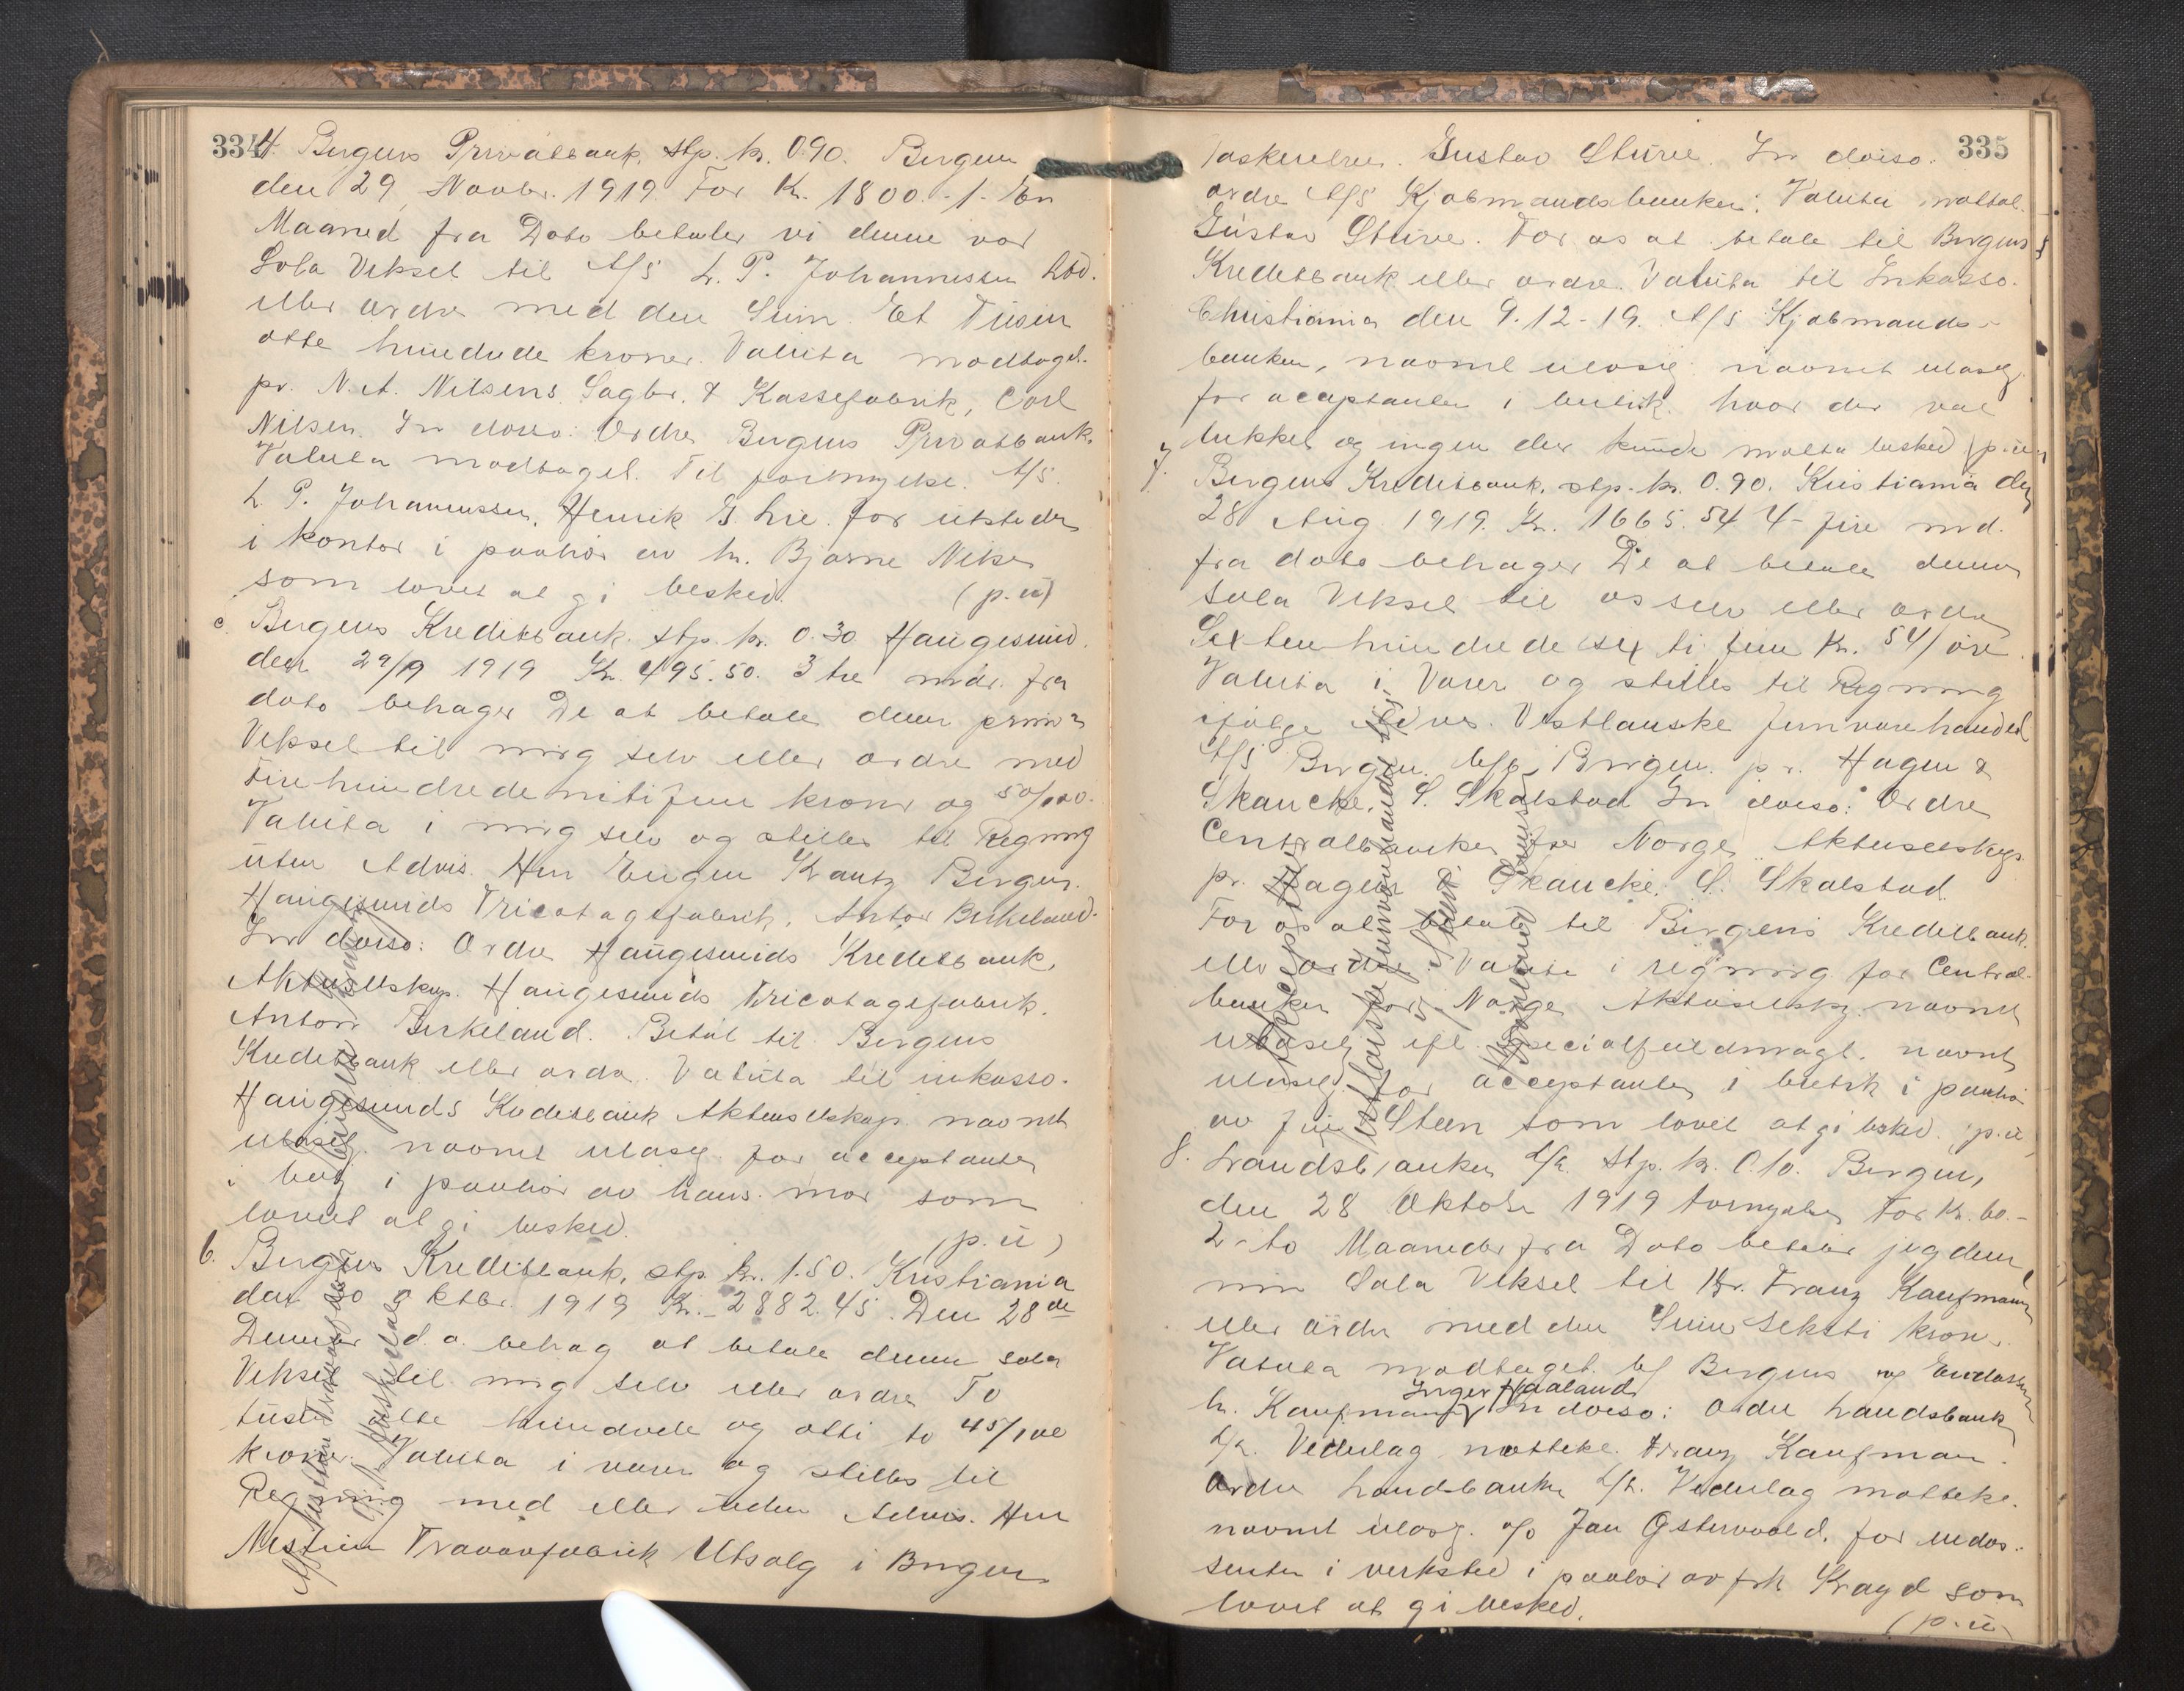 334
4. Bergens Privatbank, stp. kr. 0.90. Bergen
den 29 Novbr. 1919 For Kr. 1800.-1- En
Maaned fra Dato betaler vi denne vor
Sola Veksel til A/S L. P. Johannessen Ltd.
eller ordre med den Sum Et Tusen
otte hundrede kroner. Valuta modtaget.
pr. N. A. Nilsens Sagbr. & Kassefabrik, Carl
Nilsen. In dorso: Ordre Bergens Privatbank.
Valuta modtaget. Til fornyelse. A/S.
L. P. Johannessen, Henrik G. Lie. for utsteder
i kontor i paahør av hr. Bjarne Nilsen
som lovet at gi besked. (p.u)
Bergens Kreditbank. stp. kr. 0.30 Haugesund.
den 29/9 1919 Kr. 495.50. 3 tre mdr. fra
dato behager De at betale denne prima
Veksel til mig selv eller ordre med
Firehundrede nitifem kroner og 50/100.
Valuta i mig selv og stilles til Regning
uten Advis. Herr Eugen Krantz Bergen.
Haugesunds Tricotagefabrik. Anton Birkeland.
In dorso: Ordre Haugesunds Kreditbank,
Aktieselskap. Haugesunds Tricotagefabrik.
Anton Birkeland. Betal til Bergens
Kreditbank eller ordre. Valuta til inkasso.
Haugesunds Kreditbank Aktieselskap. navnet
ulæsel. navnet ulæsel. for acceptanten
i bolig i paahør av hans mor som
lovet at gi besked. (p.u)
6. Bergens Kreditbank, stp. kr. 1.50. Kristiania
den 20 oktbr. 1919 Kr. 2882.45. Den 28de
Decemr d.a. behag at betale denne sola
Veksel til mig selv eller ordre To
tusen otte hundrede og otti to 45/100
kroner. Valuta i varer og stilles til
Regning med eller uden Advis. Herr
Trævarefabrik Utsalg i Bergen
335
Gustav Sture. In dorso:
ordre A/S Kjøbmandsbanken. Valuta mottat.
Gustav Sture. For os at betale til Bergens
Kreditbank eller ordre. Valuta til Inkasso.
Christiania den 9.12-19. A/S Kjøbmands-
banken, navnet ulæselig navnet ulæselig
for acceptanten i butik. hvor der var
lukket og ingen der kunde motta besked (p.u)
7. Bergens Kreditbank, stp. kr. 0.90. Kristiania den
28 Aug. 1919. Kr. 1665.54 4- fire md.
fra dato behager De at betale denne
sola Veksel til os selv eller ordre
Sextenhundrede sexti fem Kr. 54/øre.
Valuta i Varer og stilles til Regning
ifølge Advis. Vestlanske Jernvarehandel
A/S Bergen. Bergen. pr. Hagen &
Skancke. S. Skalstad In dorso: Ordre
Centralbanken for Norge Aktieselskap.
pr. Hagen & Skancke. S. Skalstad.
For os at betale til Bergens Kreditbank.
eller ordre. Valuta i regning for Central-
banken for Norge Aktieselskap. navnet
ulæselig ifl. specialfuldmagt. navnet
ulæselig for acceptanten i butik i paahør
av frk. Steen som lovet at gi besked. (p.u)
8. Landsbanken A/S. stp. kr. 0.10. Bergen,
den 28 Oktober 1919 Fornyelse For Kr. 60.-
2-to Maaneder fra Dato betaler jeg denne
min Sola Veksel til Hr. Franz Kaufmann
eller ordre med den Sum Seksti kroner.
Valuta modtaget.
Inger Haaland
hr. Kaufmann In dorso: Ordre Landsbanken
A/S. Vederlag motteke. Franz Kaufman.
Ordre Landsbanken A/S. Vederlag motteke.
navnet ulæs. Jan Østervold. for endos-
senten i verksted i paahør av frk Krayd som
lovet at gi besked. (p.u)